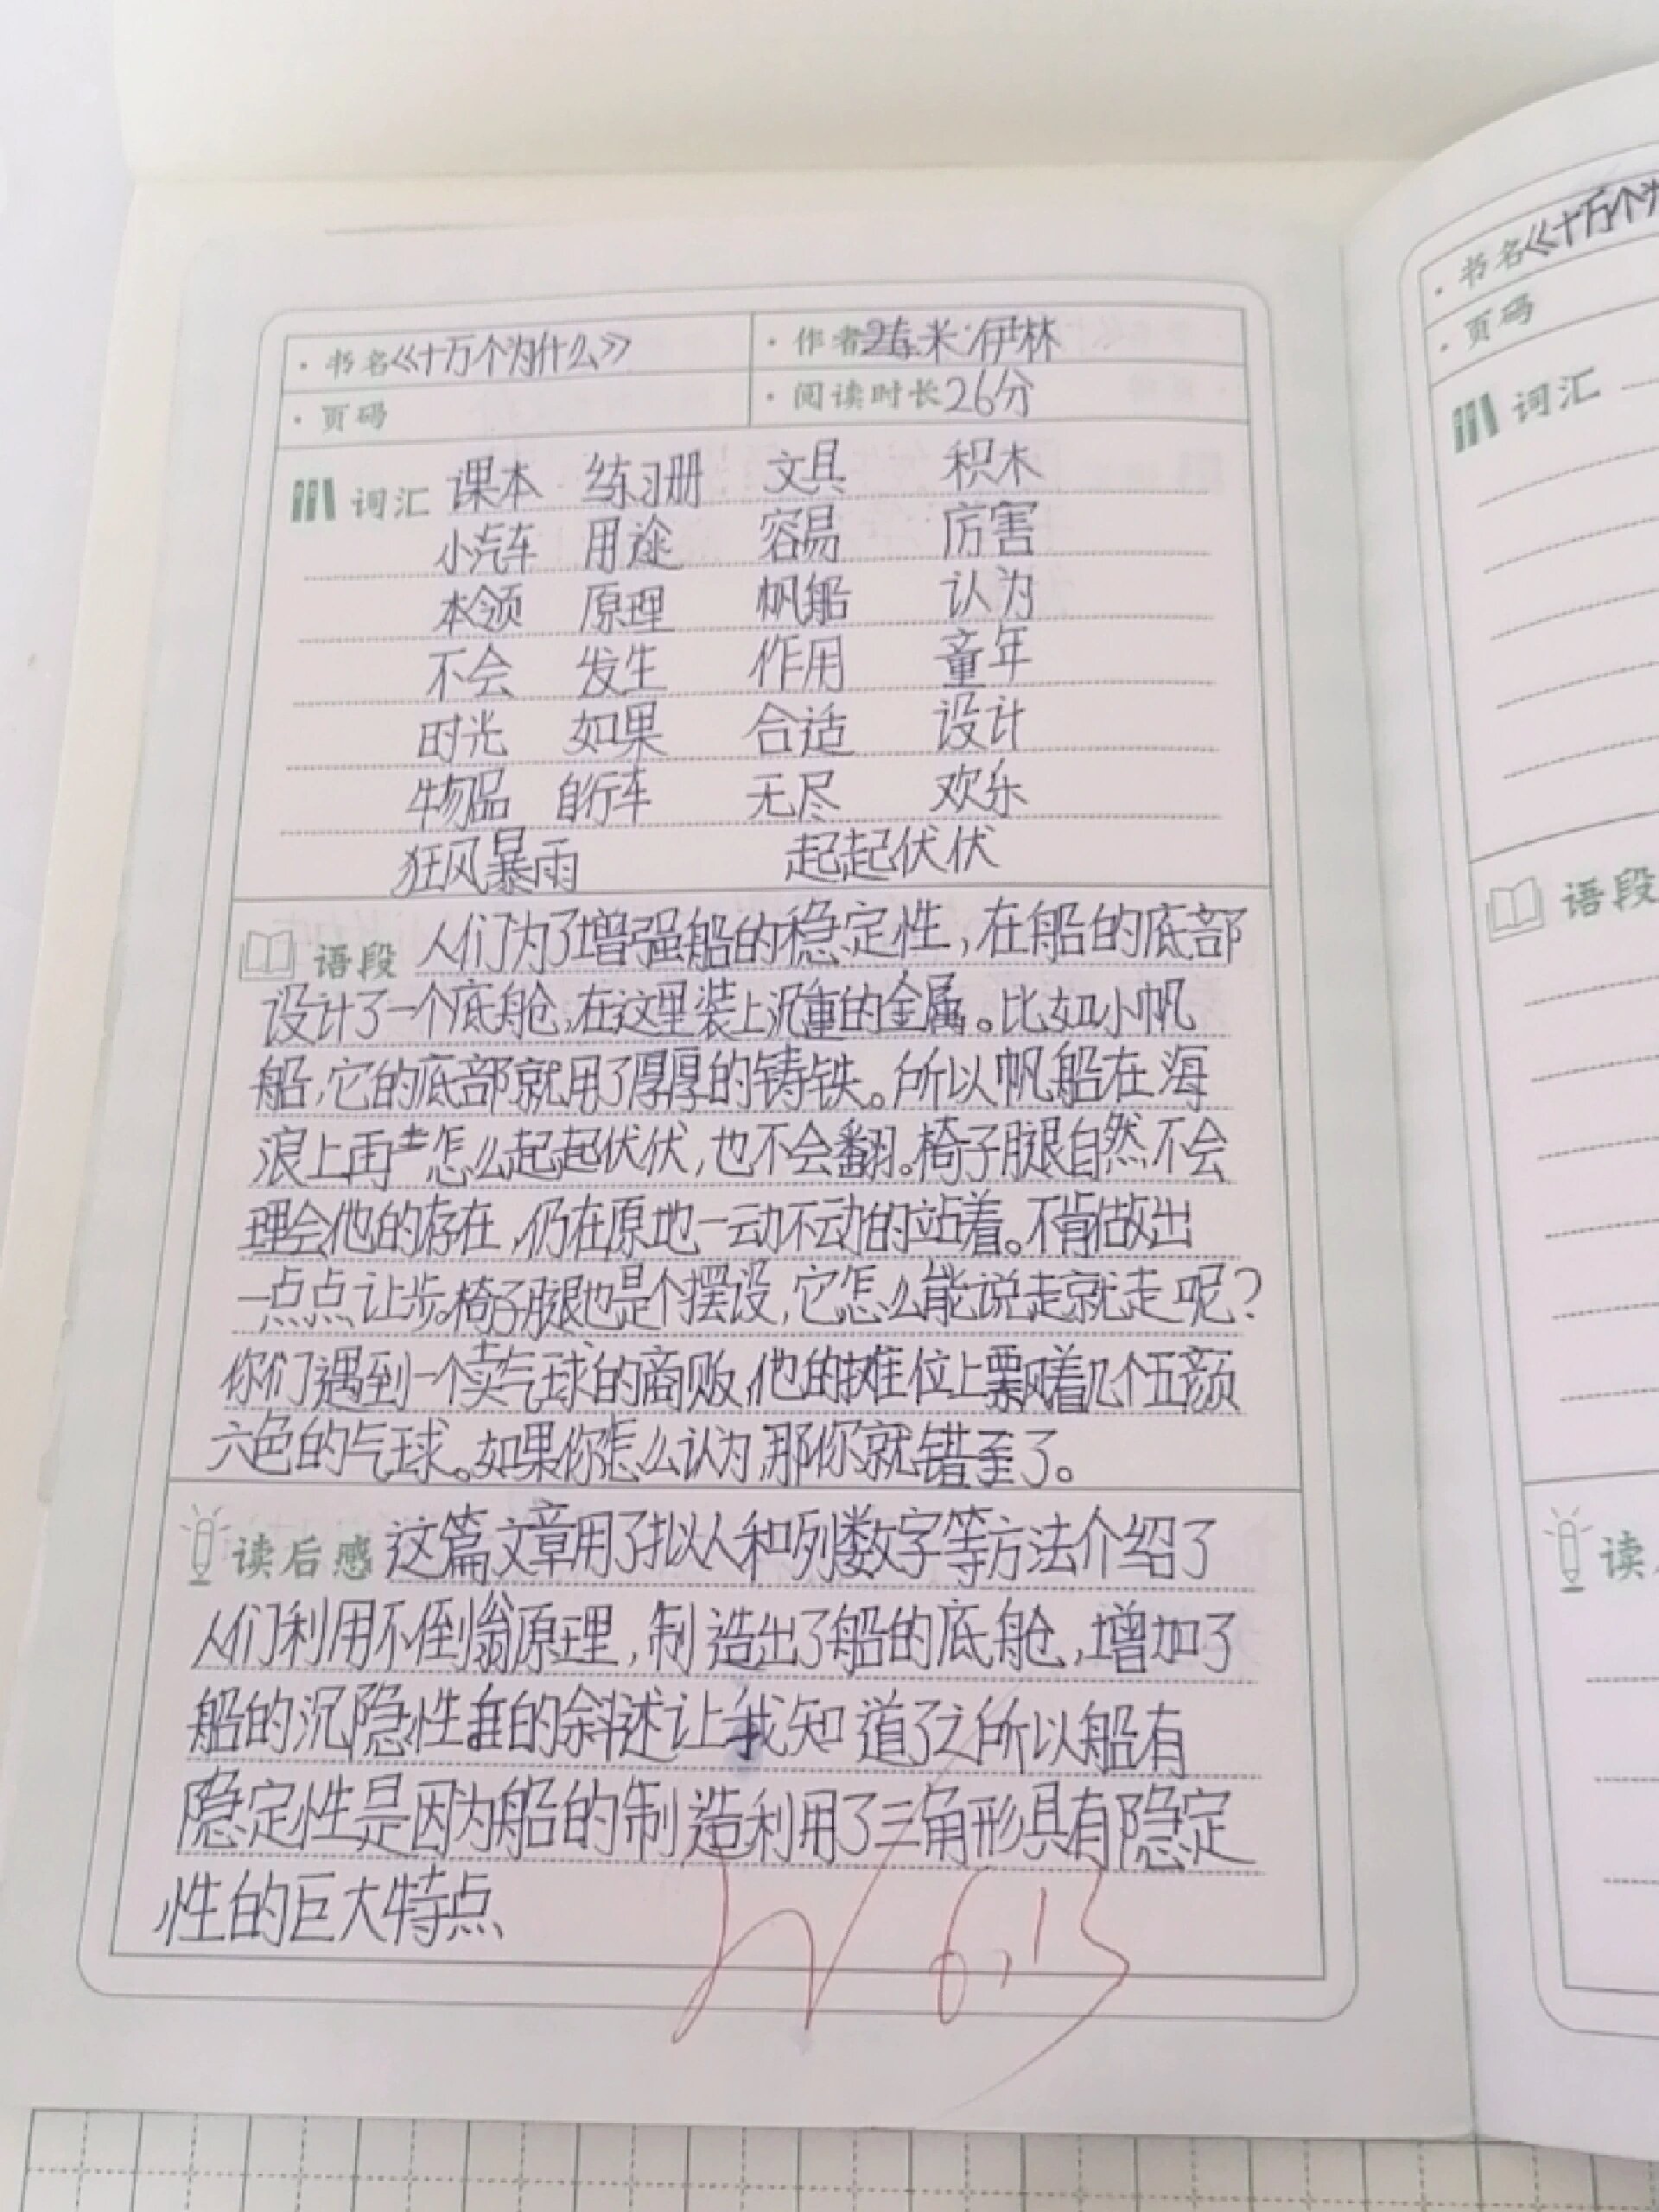 ·书名《十万个为什么》 ·作者 米·伊林
·页码 ·阅读时长 26分
词汇 课本 练习册 文具 积木
小汽车 用途 容易 厉害
本领 原理 帆船 认为
不会 发生 作用 童年
时光 如果 合适 设计
物品 自行车 无尽 欢乐
狂风暴雨 起起伏伏
语段 人们为了增强船的稳定性,在船的底部
设计了一个底舱,在这里装上沉重的金属。比如小帆
船,它的底部就用了厚厚的铸铁。所以帆船在海
浪上再怎么起起伏伏,也不会翻。椅子腿自然不会
理会他的存在,仍在原地一动不动的站着。不肯做出
一点点让步。椅子腿也是个摆设,它怎么能说走就走呢?
你们遇到一个卖气球的商贩,他的摊位上飘着几个五颜
六色的气球。如果你怎么认为,那你就错了。
读后感 这篇文章用了拟人和列数字等方法介绍了
人们利用不倒翁原理,制造出了船的底舱,增加了
船的沉隐性 的 让我知道了之所以船有
隐定性是因为船的制造利用了三角形具有隐定
性的巨大特点
6.13
·书名《十万个为
·页码
词汇
语段
读